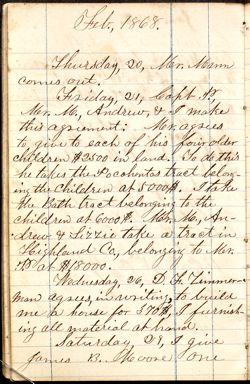 Feb, 1868.
Thursday, 20, Mr. Mann
comes out.
Friday, 21, Capt. P.
Mr. M., Andrew, & I make
this agreement: Mr. agrees
to give to each of his four older
children $3500 in land. To do this
he takes the Pocahontas tract belong-
ing the children at 5000$. I take
the Bath tract belonging to the
children at 6000$. Mr. M., An-
drew & Lizzie take a tract in
Highland Co., belonging to Mr.
at $18000.
Wednesday, 26, D. F. Zimmer-
man agrees, in writing, to build
me a house for $70$, I furnish-
ing all material at hand.
Saturday, 29, I give
James B. Moore one